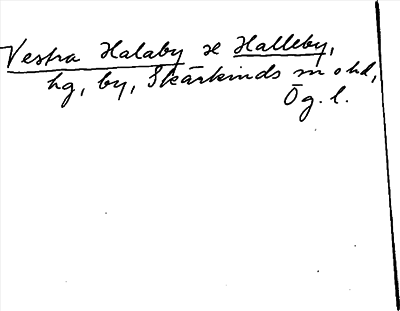 Vestra Halaby se Halleby,
hg, by, Skärkinds sn o hd,
Ög. l.